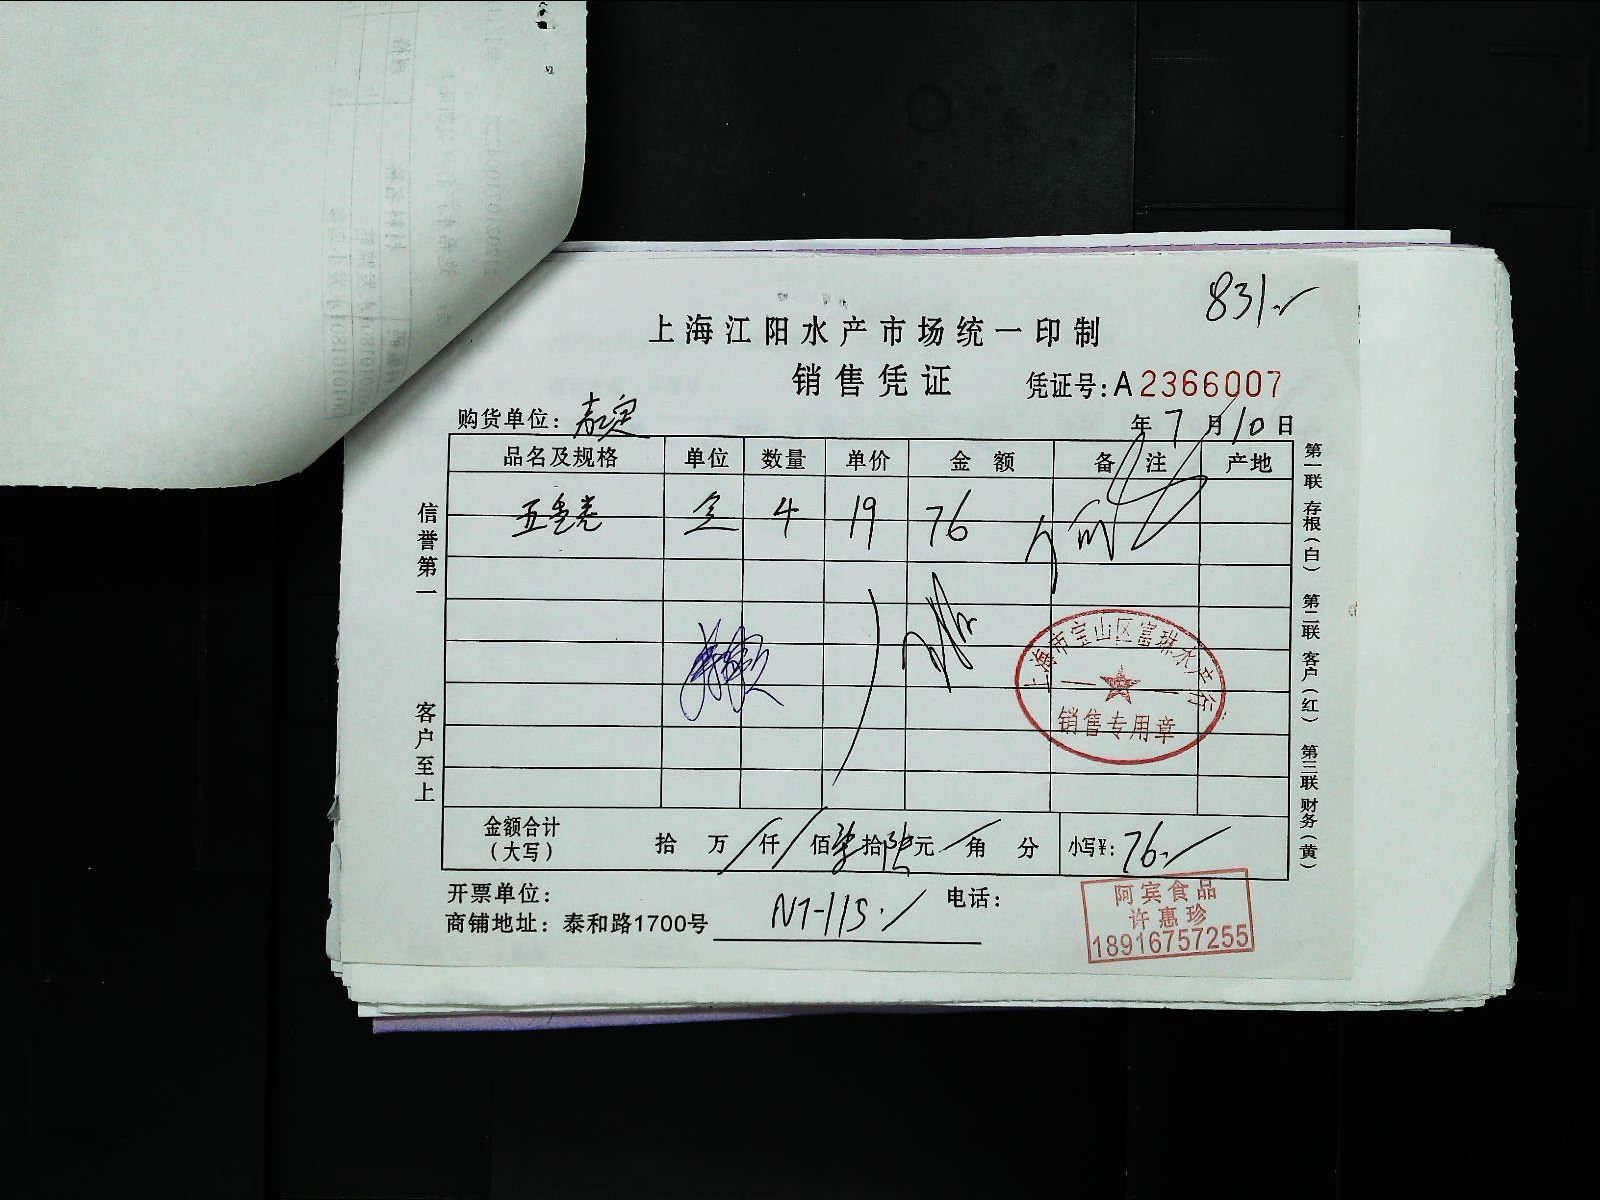 831.
上海江阳水产市场统一印制
销售凭证
凭证号:A2366007
购货单位: 嘉定
年 7 月 10 日
品名及规格 单位 数量 单价 金额 备注 产地
4 19 76
信誉第一
客户至上
第一联 存根(白) 第二联 客户(红) 第三联 财务(黄)
上海市宝山区富琳水产行
销售专用章
金额合计(大写) 拾 万 仟 佰 柒 拾 陆 元 角 分 小写¥: 76.
开票单位:
电话:
商铺地址: 泰和路1700号 N7-115.
阿宾食品
许惠珍
18916757255